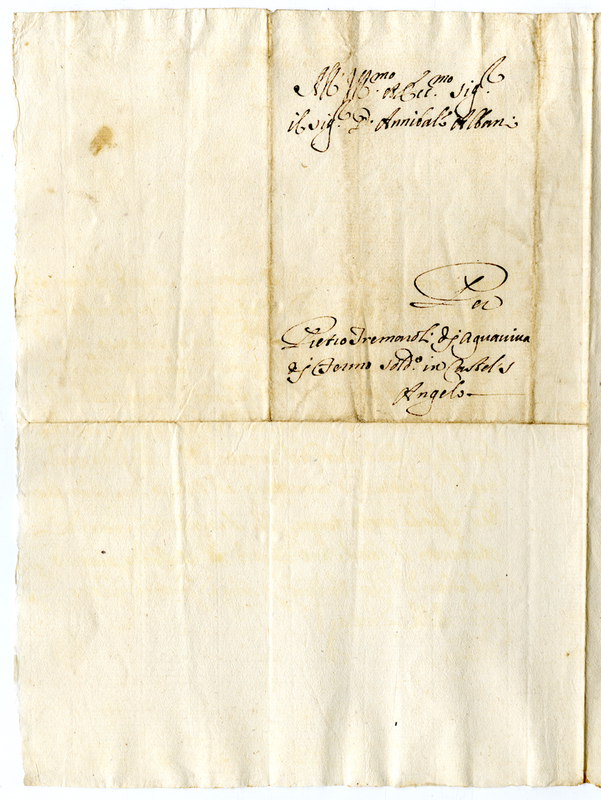 All' Ill.mo et Ecc.mo Sig.r
il Sig.r D. Annibale Albani
Per
Pietro Tremaroli di Aquaviva
di Fermo sold.o in Castel S
Angelo